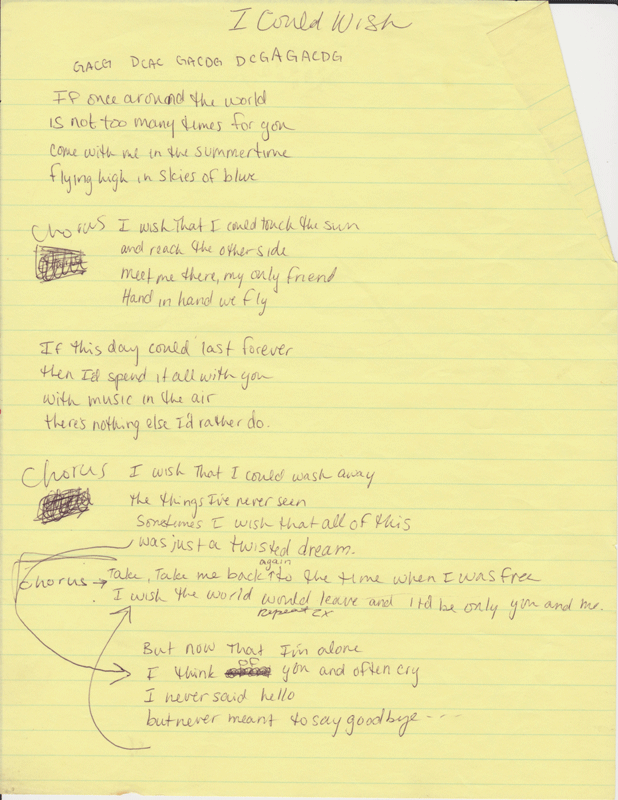 I Could Wish
GACG DCAC GACDG DCGAGACDG
If once around the world
is not too many times for you
come with me in the summertime
flying high in skies of blue
Chorus I wish that I could touch the sun
and reach the other side
meet me there, my only friend
Hand in hand we fly
If this day could last forever
then I'd spend it all with you
with music in the air
there's nothing else I'd rather do.
Chorus I wish that I could wash away
the things I've never seen
Sometimes I wish that all of this
was just a twisted dream.
again
Chorus → Take, Take me back to the time when I was free
I wish the world would leave and it'd be only you and me.
repeat 2x
But now that I'm alone
of
I think you and often cry
I never said hello
but never meant to say goodbye....